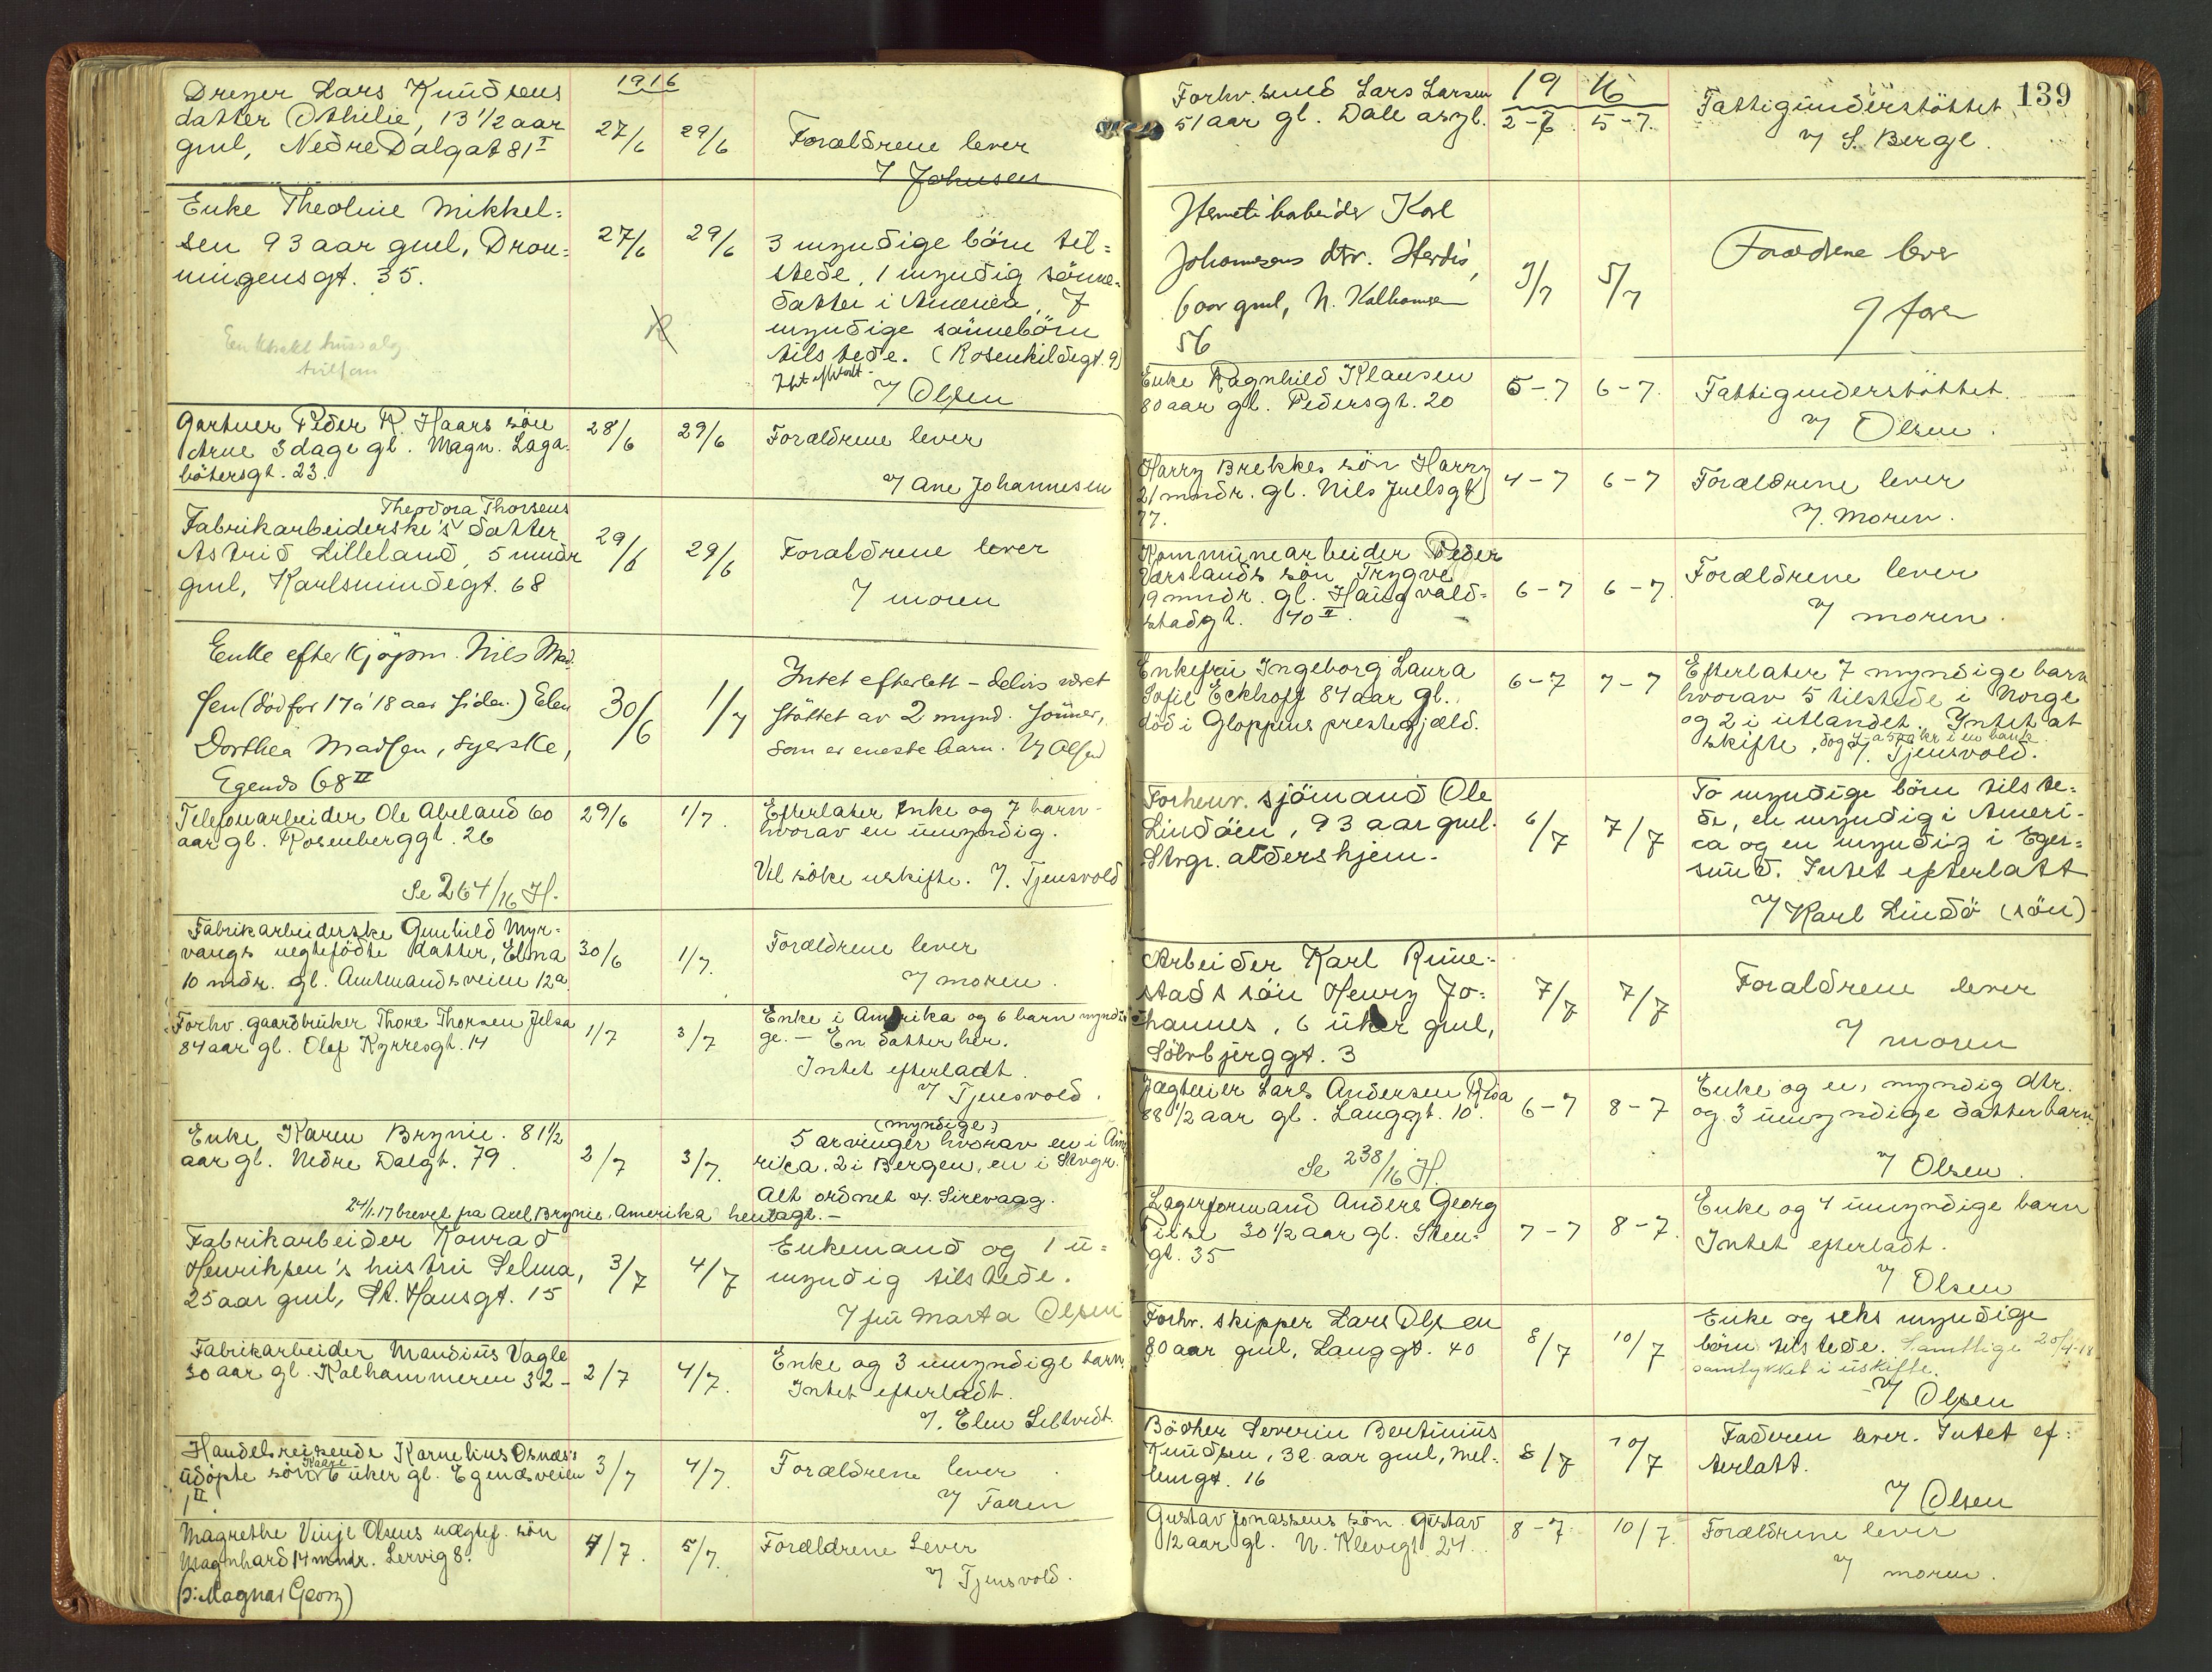 1916
Dreyer Lars Knudsens
datter Othilie, 13 1/2 aar
gml, Nedre Dalgat 81 I
27/6
29/6
Forældrene lever
7 Johnsen
Enke Theoline Mikkel=
sen 93 aar gml, Dron=
ningensgt. 35.
27/6
29/6
3 myndige börn til=
stede, 1 myndig sönne=
datter i America, 7
myndige sönnebörn
tilstede. (Rosenkildegt. 9)
Intet efterlatt.
7 Olsen
Gartner Peder R. Haars sön
Arne 3 dage gl. Magn. Laga=
bötersgt. 23.
28/6
29/6
Forældrene lever
7 Ane Johannesen
Theodora Thorsens
Fabrikarbeiderske's datter
Astrid Lilleland, 5 mndr
gml, Karlsmindegt. 68
29/6
29/6
Forældrene lever
7 moren
Enke efter Kjöpm. Nils Mad=
sen (död for 17 à 18 aar siden) Elen
Dorthea Madsen, syerske,
Egends 68 II
30/6
1/7
Intet efterlatt - delvis været
støttet av 2 mynd. sönner,
som er eneste barn. 7 Olsen
Telefonarbeider Ole Abeland 60
aar gl. Rosenberggt. 26
Se 264/16 H.
29/6
1/7.
Efterlater Enke og 7 barn -
hvorav en umyndig.
Vil söke uskifte. 7. Tjensvold
Fabrikarbeiderske Gunhild Myr=
vangs uegtefödte datter, Elma
10 mdr. gl. Amtmandsveien 12a
30/6
1/7.
Forældrene lever
7 moren.
Forhv. gaardbruker Thore Thorsen Jelsa
84 aar gl. Olaf Kyrresgt. 14
1/7
3/7
Enke i Amerika og 6 barn myndi
ge. - En datter her.
Intet efterladt.
7 Tjensvold.
Enke Karen Brynie. 81 1/2
aar gl. Nedre Dalgt. 79.
2/7
3/7.
(myndige)
5 arvinger hvorav en i Ame
rika. 2 i Bergen, en i Stvgr.
Alt ordnet 7. Sirevaag.
24/1.17 brevet fra Axel Brynie, Amerika henlagt. -
Fabrikarbeider Konrad
Henriksen's hustru Selma,
25 aar gml, St. Hansgt. 15
3/7
4/7
Enkemand og 1 u=
myndig tilstede.
7 fru Marta Olsen
Fabrikarbeider Maudius Vagle
30 aar gl. Kalhammeren 32 -
2/7
4/7.
Enke og 3 umyndige barn,
Intet efterladt.
7. Elen
Handelsreisende Karnelius Osnæs's
udöpte sön Kaare 6 uker gl. Egenæsveien
1 II
3/7
4/7.
Forældrene lever.
7 Faren
Magrethe Vinje Olsens uægtef. sön
Magnhard 14 mndr. Lervig 8.
(o: Magnar Georg)
4/7.
5/7.
Forældrene Lever
7 Tjensvold.
139
19 16
Forhv. smed Lars Larsen
51 aar gl. Dale asyl.
2-7
5-7.
Fattigunderstöttet
7 S. Berge.
Hermetikarbeider Karl
Johannesens dtr. Herdis,
6 aar gml, N. Kalhammer
56
3/7
5/7
Forældrene lever
7 faren
Enke Ragnhild Klausen
80 aar gl. Pedersgt. 20
5-7
6-7.
Fattigunderstöttet.
7 Olsen.
Harry Brekkes sön Harry
21 mndr. gl. Nils Juelsgt
77.
4-7
6-7
Forældrene lever
7. moren.
Kommunearbeider Peder
Værslands sön Trygve
19 mndr. gl. Haugvald=
stadgt. 40 II.
6-7
6-7.
Forældrene lever
7 moren.
Enkefru Ingeborg Laura
Sofie Eckhoff 84 aar gl.
död i Gloppens prestegjæld.
6-7
7-7
Efterlater 7 myndige barn
hvorav 5 tilstede i Norge
og 2 i utlandet. Intet at
skifte, dog 4 a 500 kr i en bank.
7. Tjensvold.
Forhenv. sjömand Ole
Lindöen, 93 aar gml.
Stvgr. aldershjem.
6/7
7/7
To myndige börn tilste=
de, en myndig i Ameri=
ca og en myndig i Eger=
sund. Intet efterlatt
7 Karl Lindö (sön)
Arbeider Karl Rune=
stads sön Henry Jo=
hannes, 6 uker gml,
Sölvbjerggt. 3
7/7
7/7
Forældrene lever
7 moren
Jægtmeier Lars Andersen Risa
88 1/2 aar gl. Langgt. 10.
Se 238/16 H.
6-7
8-7
Enke og en myndig dtr.
og 3 umyndige datterbarn.
7 Olsen.
Lagerformand Anders Georg
Tilse 30 1/2 aar gl. Sten=
gt. 35
7-7
8-7.
Enke og 4 umyndige barn
Intet efterladt.
7 Olsen
Forhv. skipper Lars Olsen
80 aar gml, Langgt. 40
8/7
10/7
Enke og seks myndige
börn tilstede. Samtlige 20/4-18
samtykket i uskifte.
7 Olsen
Bödker Severin Bertinius
Knudsen, 32 aar gml, Mel=
lemgt. 16
8/7
10/7
Faderen lever. Intet ef=
terlatt.
7 Olsen
Gustav Jonassens sön Gustav
12 aar gl. N. Klevgt. 24.
8-7
10/7.
Forældrene lever
7 moren.